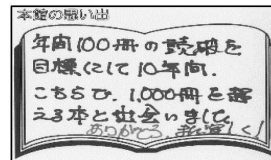 本館の思い出
年間100冊の読破を
目標にして10年間.
こちらで. 1,000冊を超
える本と出会いました
ありがとう